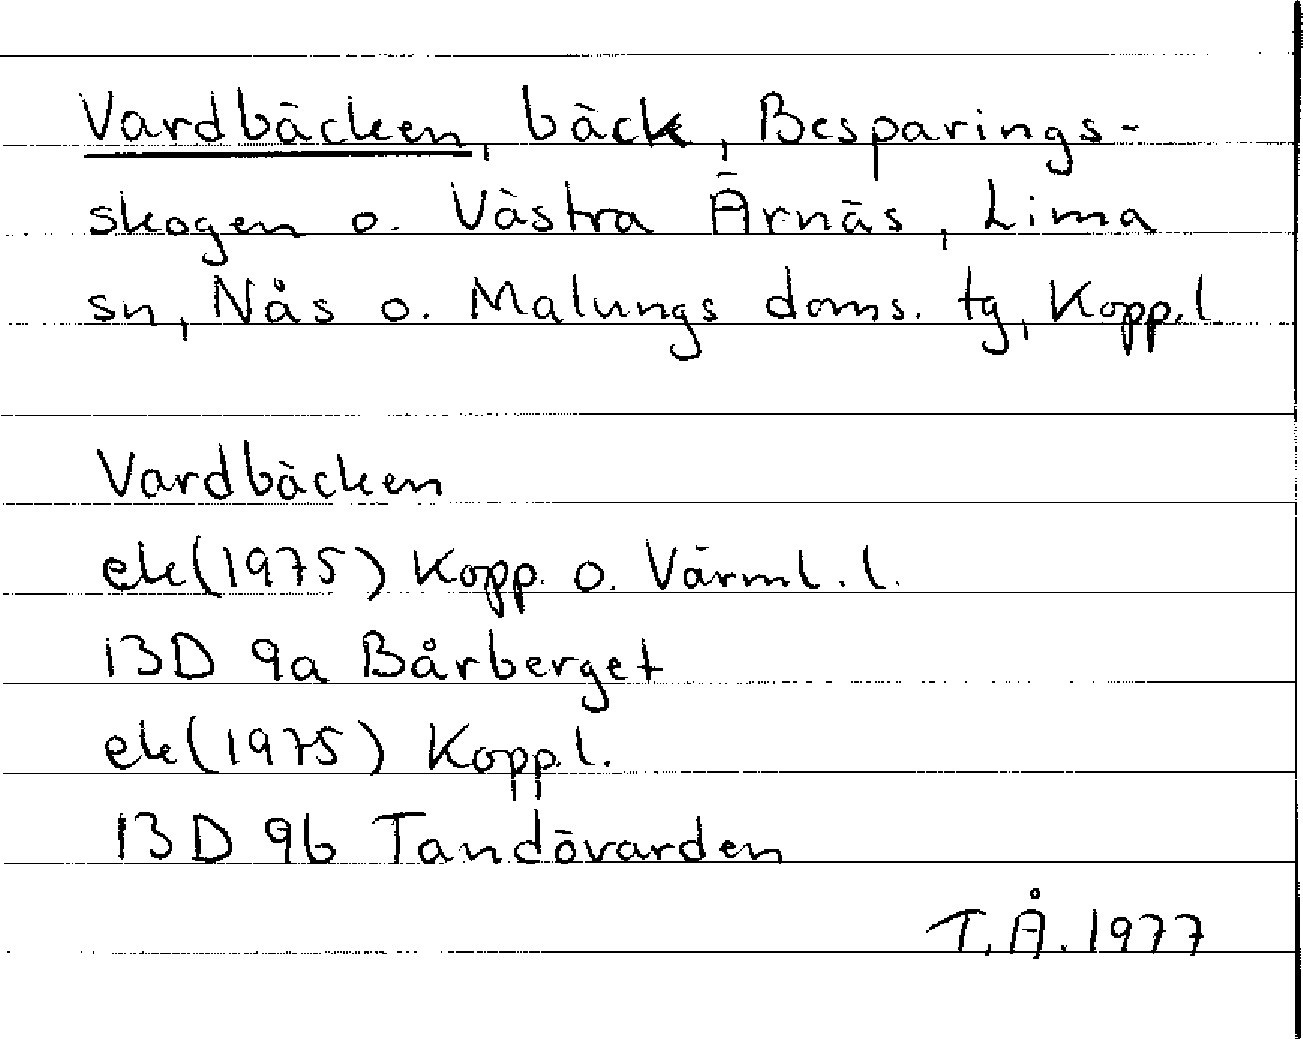 Vardbäcken, bäck, Besparings-
skogen o. Västra Ärnäs, Lima
sn, Nås o. Malungs doms. tg, Kopp.l
Vardbäcken
ek(1975) Kopp. o. Värml. l.
13D 9a Bårberget
ek(1975) Kopp.l.
13D 9b Tandövarden
T.Å. 1977